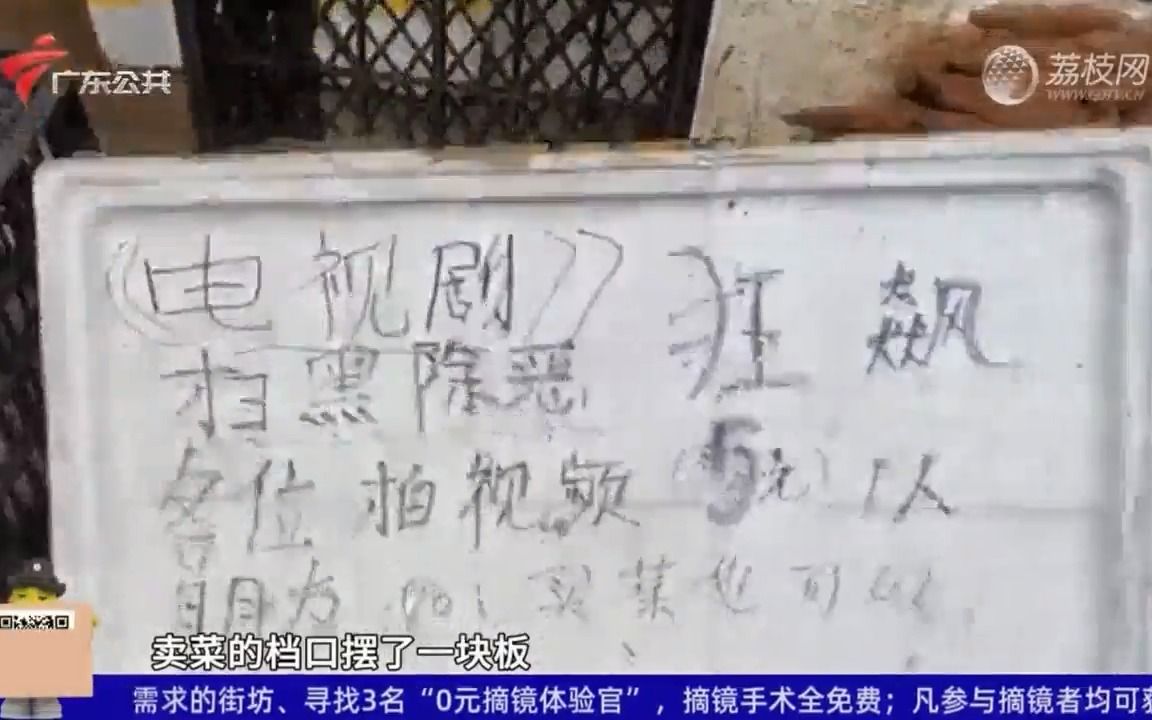 广东公共
荔枝网
WWW.GDTV.CN
《电视剧》 狂飙
扫黑除恶
各位拍视频 (5元) 1人
自自为 买菜也可以
卖菜的档口摆了一块板
需求的街坊、寻找3名“0元摘镜体验官”，摘镜手术全免费；凡参与摘镜者均可获